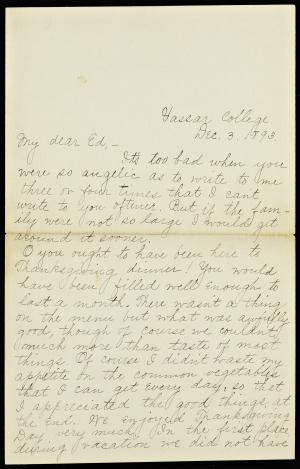 Vassar College
Dec. 3, 1893.
My dear Ed,-
It's too bad when you
were so angelic as to write to me
three or four times that I can't
write to you oftener. But if the fam-
ily were not so large I would get
around it sooner.
O you ought to have been here to
Thanksgiving dinner! You would
have been filled well enough to
last a month. There wasn't a thing
on the menu but what was awfully
good, though of course we couldn't
much more than taste of most
things. Of course I didn't waste my
appetite on the common vegetables
that I can get every day, so that
I appreciated the good things, at
the end. We enjoyed Thanksgiving
Day very much. In the first place
during vacation we did not have